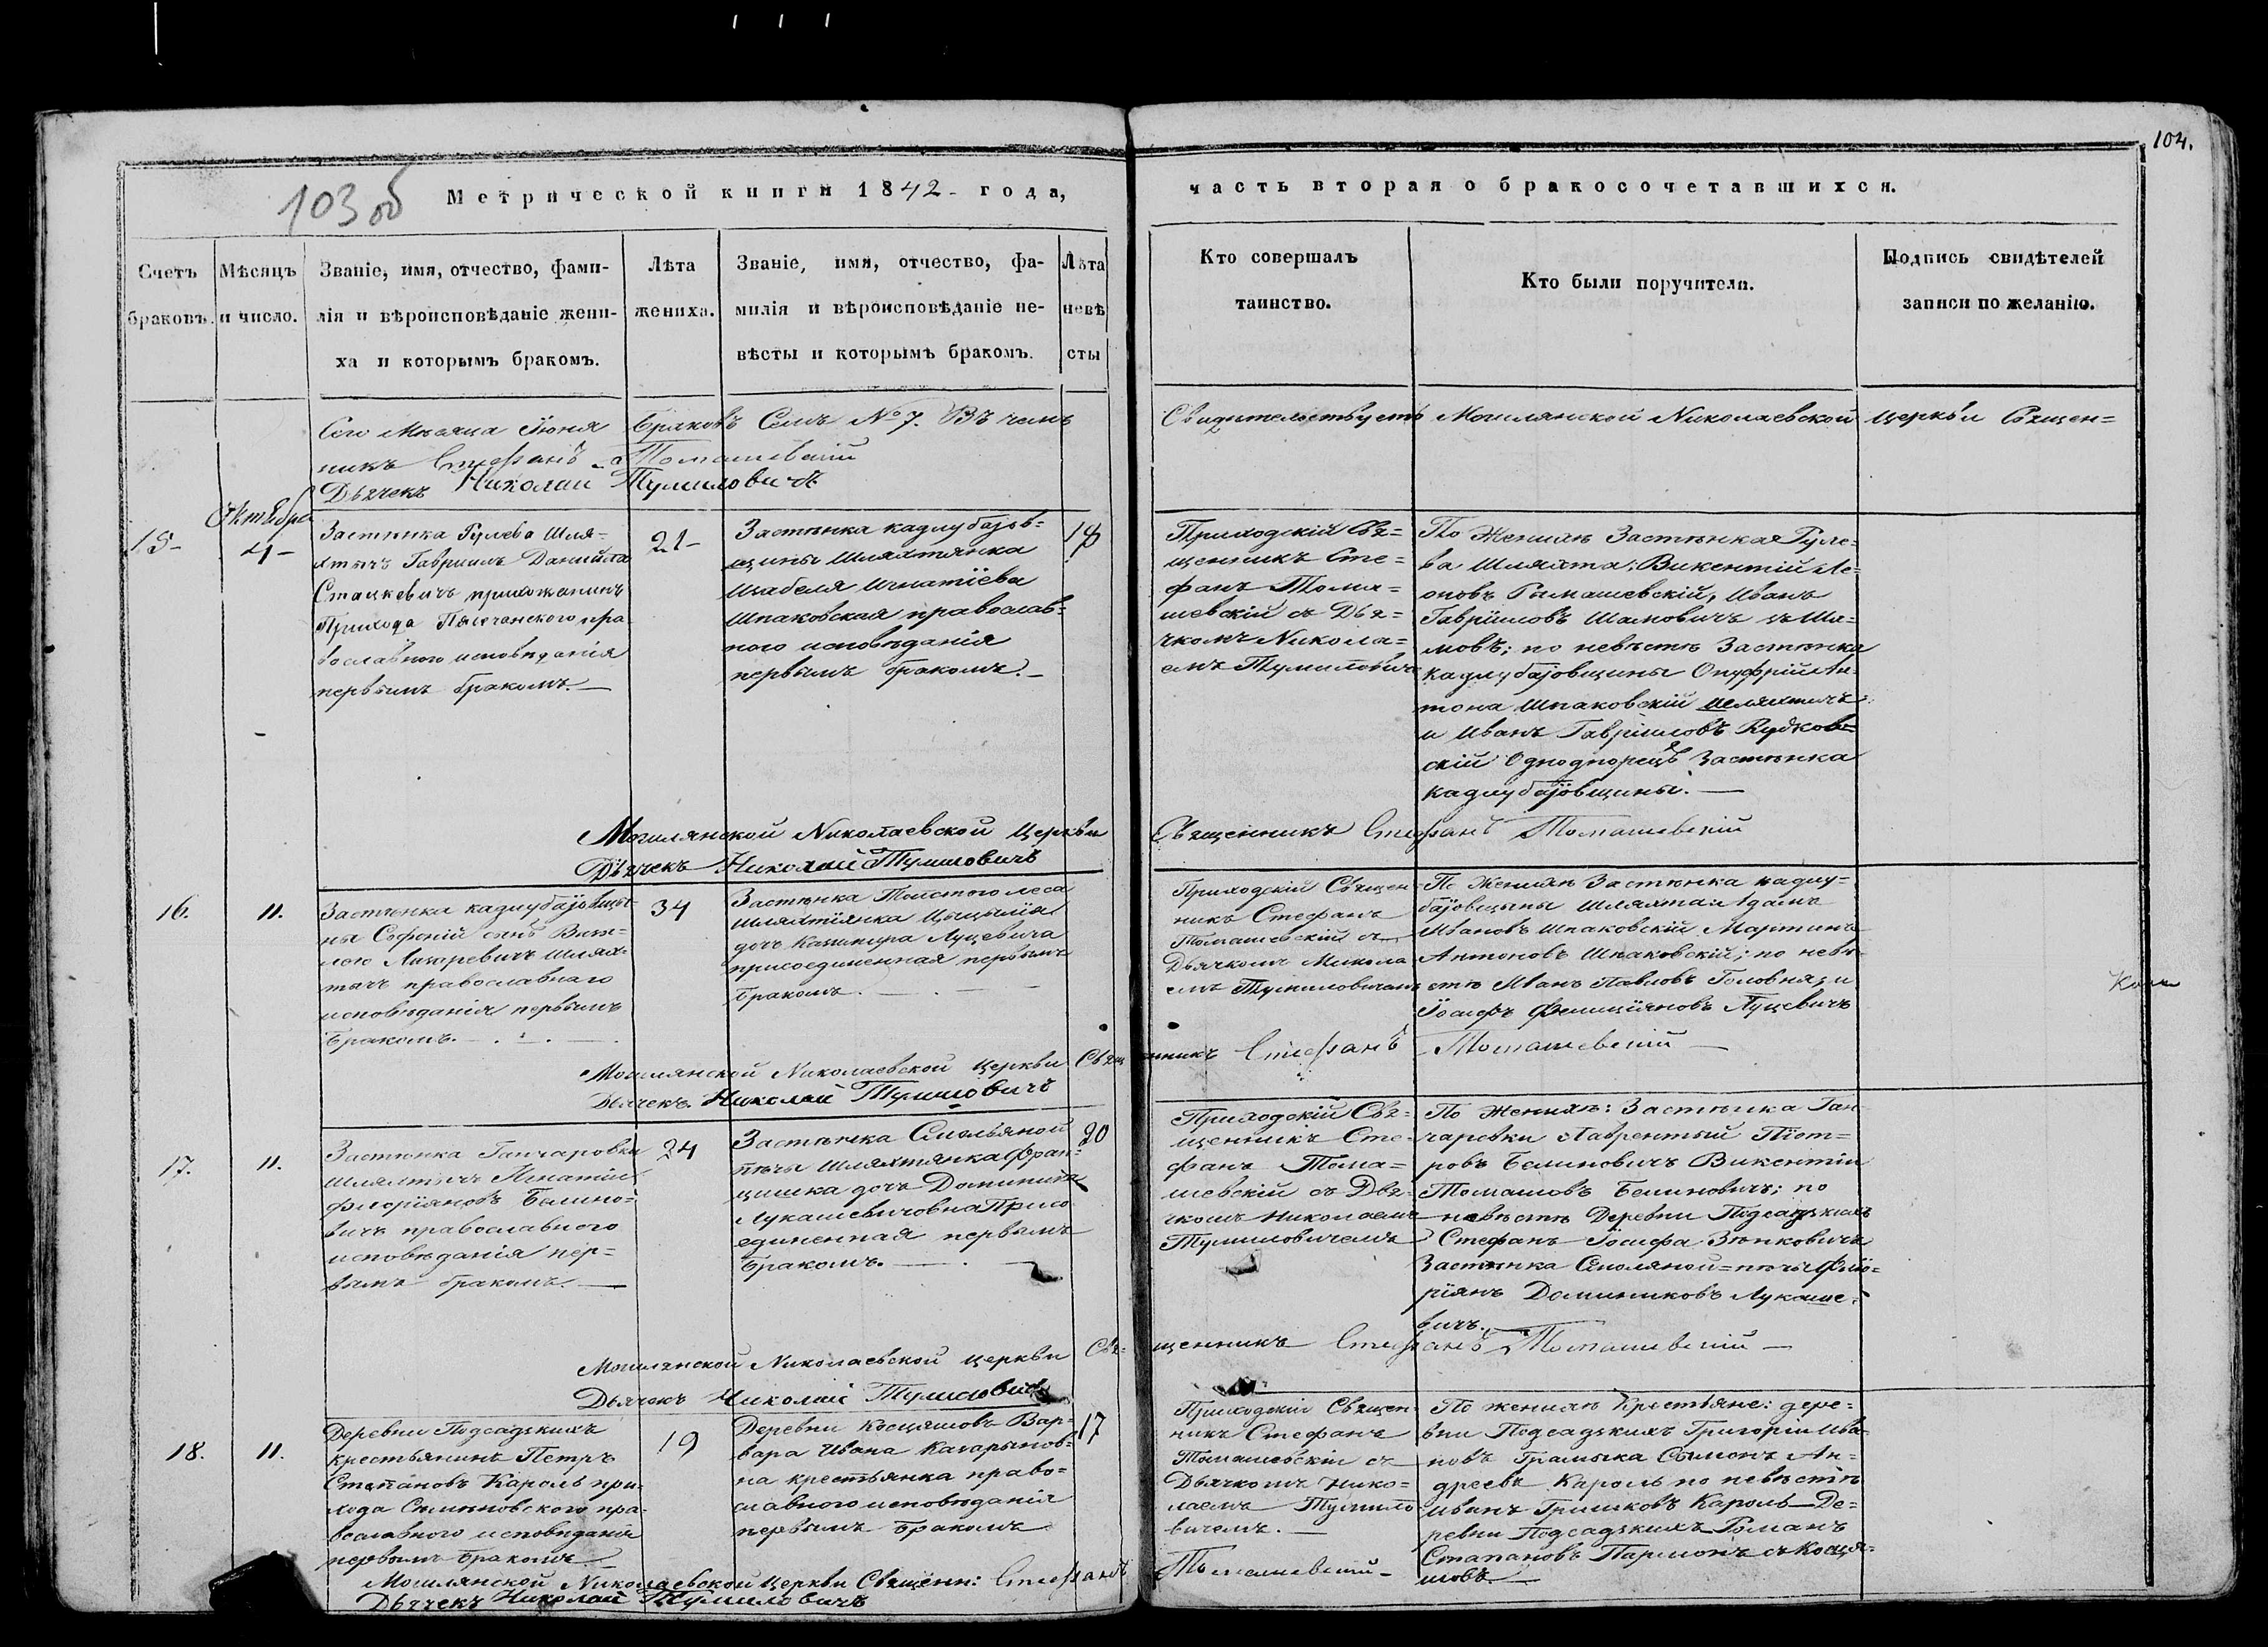 104.
103 об
Метрической книги 1842 - года,
часть вторая о бракосочетавшихся.
Счетъ браковъ.
Мѣсяцъ и число.
Званіе, имя, отчество, фами-
лія и вѣроисповѣданіе жени-
ха и которымъ бракомъ.
Лѣта
жениха.
Званіе, имя, отчество, фа-
милія и вѣроисповѣданіе не-
вѣсты и которымъ бракомъ.
Лѣта
невѣ
сты
Кто совершалъ
таинство.
Кто были поручители.
Подпись свидѣтелей
записи по желанію.
Сего Мѣсяца Іюня браковъ Семь № 7. Въ чемъ Свидѣтельствуетъ Могилянской Николаевской церкви Священ=
никъ Стефанъ Томашевскій
Дьячекъ Николай Тумиловичъ
Октября
15-
4-
Застѣнка Гулева Шля=
хтычъ Гавріилъ Данійла
Стацкевичъ прихожанинъ
Прихода Пясечанского пра
вославного исповѣданія
первымъ бракомъ. —
21-
Застѣнка кадлубаіов=
щины Шляхтянка
Изабеля Игнатіева
Шпаковская православ=
ного исповѣданія
первымъ бракомъ. -
18
Приходскій Свя=
щенникъ Сте=
фанъ Тома=
шевскій съ Дья=
чкомъ Никола=
емъ Тумиловичъ
По Женихѣ Застѣнка Гуле=
ва Шляхта: Викентій Ле=
оновъ Рамашевскій, Иванъ
Гавріиловъ Шамовичъ съ Ша=
мовъ; по невѣстѣ Застѣнка
кадлубаіовщины Онуфрій Ан-
тона Шпаковскій шляхтичъ
и Иванъ Гавріиловъ Рудков=
скій Однодворецъ Застѣнка
кадлубаіовщины. —
Могилянской Николаевской Церкви Священникъ Стефанъ Томашевскій
Дьячекъ Николай Тумиловичъ
16.
11.
Застѣнка кадлубаіовщы=
ны Софоній сынъ
Лигоревичъ Шлях=
тычъ православнаго
исповѣданія первымъ
Бракомъ. —
34
Застѣнка Толстоголеса
шляхтіянка Цыцылія
дочь Казимира Луцевича
присоединенная первымъ
бракомъ. —
Приходскій Священ-
никъ Стефанъ
Томашевскій съ
Дьячкомъ Никола
емъ Тумиловичемъ
По Женихѣ Застѣнка кадлу=
баіовщыны Шляхта: Адамъ
Ивановъ Шпаковскій Мартинъ
Антоновъ Шпаковскій; по невѣ-
стѣ Иванъ Павловъ Головня, и
Іосифъ Фелиціяновъ Луцевичъ
Могилянской Николаевской Церкви Священникъ Стефанъ Томашевскій —
Дьячекъ Николай Тумиловичъ
17.
11.
Застѣнка Ганчаровки
шляхтычъ Игнатій
Флоріяновъ Белино=
вичъ православного
исповѣданія пер=
вымъ бракомъ. —
24
Застѣнка Смольяной
пѣчы Шляхтянка Фран=
цишка дочь Доминика
Лукашевичовна Присо
единенная первымъ
бракомъ. —
20
Приходскій Свя=
щенникъ Сте-
фанъ Тома=
шевскій съ Дья-
чкомъ Николаемъ
Тумиловичемъ
По Женихѣ: Застѣнка Ган-
чаровки Лаврентый Піот=
ровъ Белиновичъ Викентій
Томашовъ Белиновичъ; по
невѣстѣ Деревни Подсадзкихъ
Стефанъ Іосифа Зѣнковичъ
Застѣнка Смоляной=пѣчы Фліо=
ріянъ Доминиковъ Лукаше=
вичъ.
Могилянской Николаевской церкви Свя=щенникъ Стефанъ Томашевскій —
Дьячекъ Николай Тумиловичъ
18.
11.
Деревни Подсадзкихъ
крестьянинъ Петръ
Степановъ Кароль при-
хода Сѣмѣновского пра-
вославного исповѣданія
первымъ бракомъ —
19
Деревни Косцяшовъ Вар=
вара Ивана
на крестьянка право=
славного исповѣданія
первымъ бракомъ
17
Приходскій Священ-
никъ Стефанъ
Томашевскій съ
Дьячкомъ Нико=
лаемъ Тумило
вичемъ. —
По женихѣ Крестьяне: дере=
вни Подсадзкихъ Григорій Ива-
новъ Грамыка Сымонъ Ан=
дреевъ Кароль по невѣстѣ
Иванъ Гришковъ Кароль Де=
ревни Подсадзкихъ Романъ
Стапановъ Пармонъ съ Косця=
шовъ. —
Могилянской Николаевской Церкви Священн: Стефанъ Томашевскій -
Дьячекъ Николай Тумиловичъ